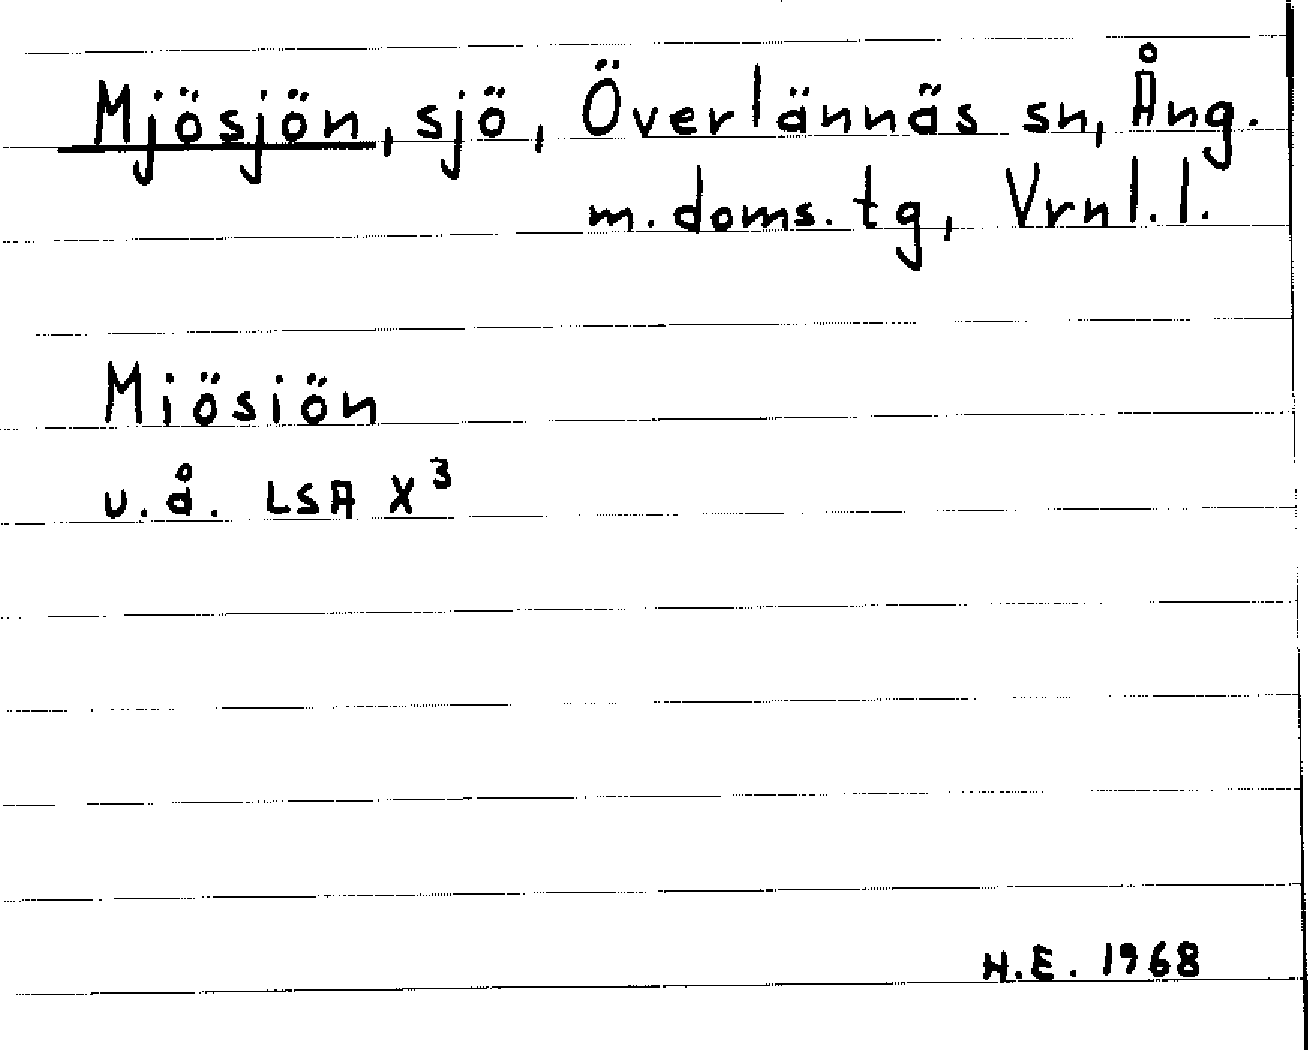 Mjösjön, sjö, Överlännäs sn, Ång.
m. doms. tg, Vrnl. l.
Miösiön
u. å. LSA X³
H.E. 1968